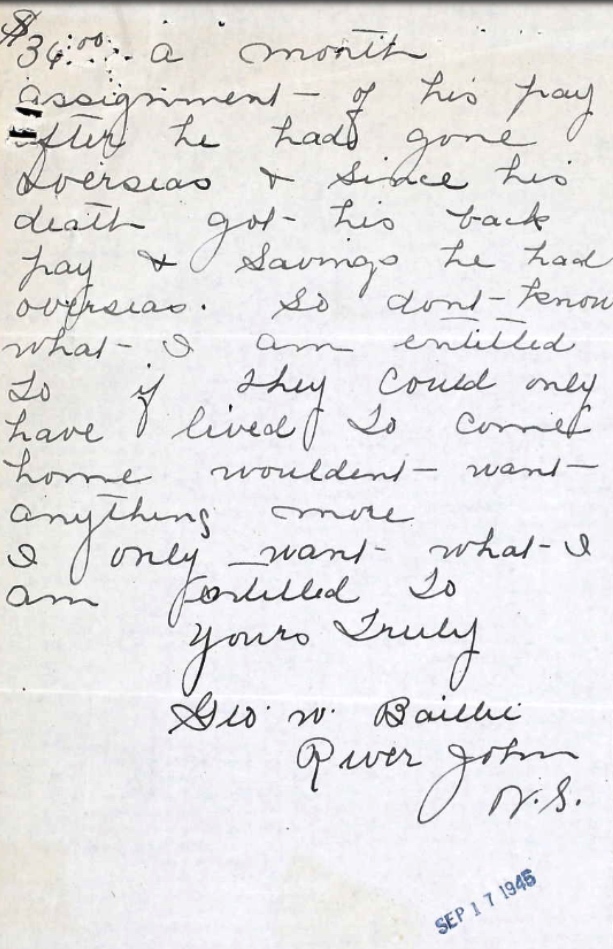 $36.00 a month
assignment - of his pay
after he had gone
overseas & since his
death got - his back
pay & savings he had
overseas. So dont - know
what - I am entitled
to if they could only
have lived to come
home wouldent - want -
anything more
I only want - what - I
am entitled to
Yours Truly
Geo. W. Baillie
River John
N.S.
SEP 17 1945